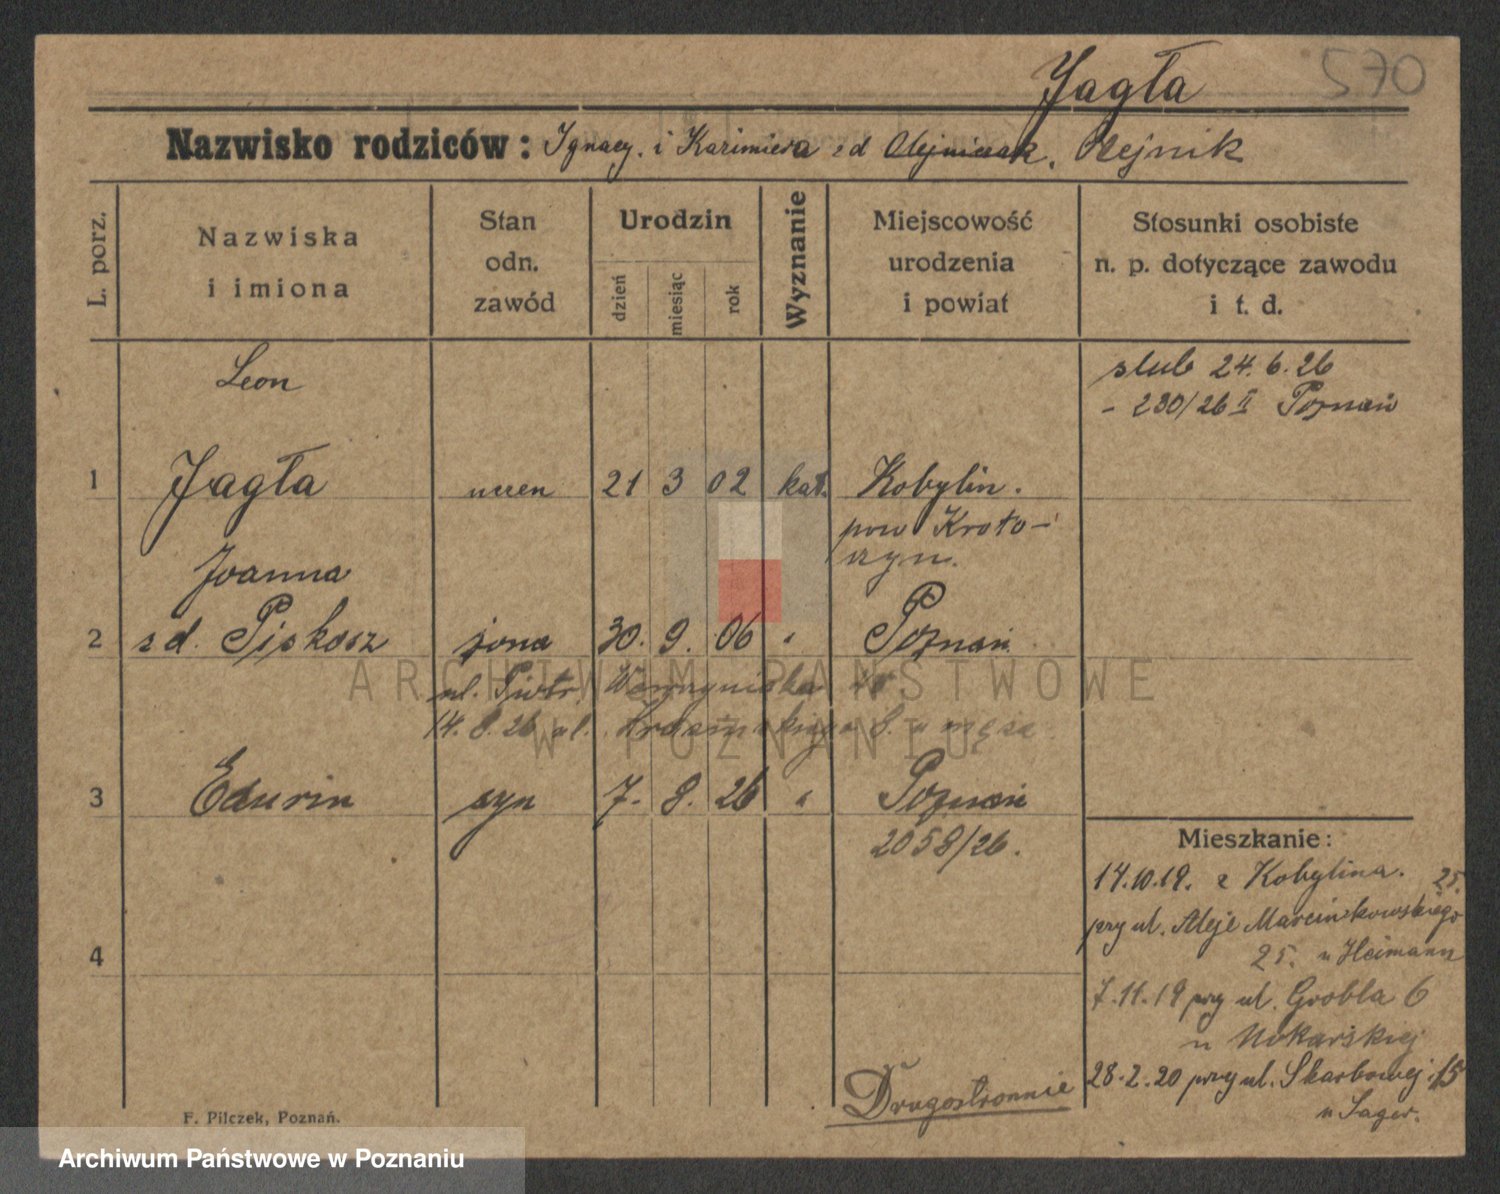 Jagła 570
Nazwisko rodziców: Ignacy. i Kazimiera zd Olejniczak. Olejnik
L. porz.
Nazwiska
i imiona
Stan
odn.
zawód
Urodzin
dzień
miesiąc
rok
Wyznanie
Miejscowość
urodzenia
i powiat
Stosunki osobiste
n. p. dotyczące zawodu
i t. d.
Leon
ślub 24.6.26
- 230/26 II Poznań
1 Jagła uczeń 21 3 02 kat. Kobylin.
pow Kroto-
szyn.
Joanna
2 zd. Piskosz żona 30. 9. 06 " Poznań
ul. Piotr Wawrzyniaka
14.8.26 ul. 8. u męża
3 Edwin syn 7. 8. 26 " Poznań
2058/26.
Mieszkanie:
14.10.19. z Kobylina. 25.
przy ul. Aleje Marcinkowskiego
25. u Heimann
4
7.11.19 przy ul. Grobla 6
u Nokarskiej
28.2.20 przy ul. Skarbowej 15
u Sager.
Drugostronnie
F. Pilczek, Poznań.
ARCHIWUM PAŃSTWOWE
W POZNANIU
Archiwum Państwowe w Poznaniu